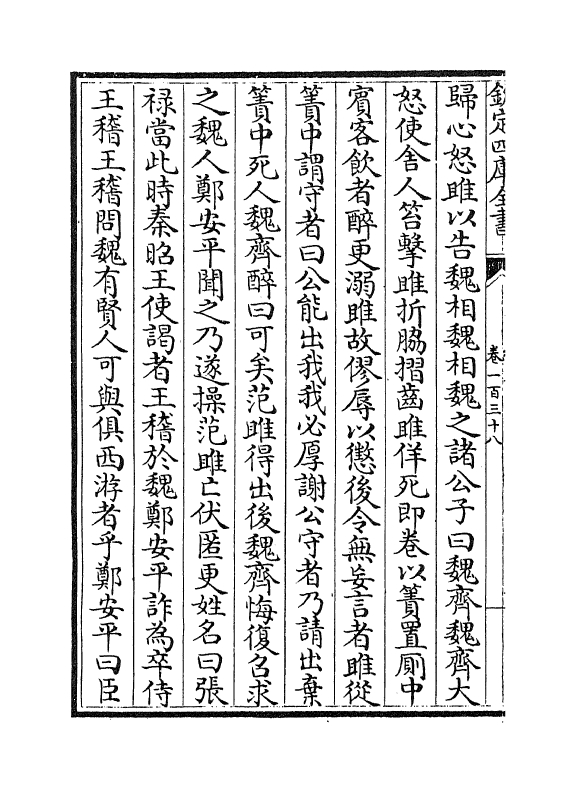 欽定四庫全書
卷一百三十八
歸心怒雎以告魏相魏相魏之諸公子曰魏齊魏齊大
怒使舍人笞擊雎折脇摺齒雎佯死即卷以簀置厠中
賓客飲者醉更溺雎故僇辱以懲後令無妄言者雎從
簀中謂守者曰公能出我我必厚謝公守者乃請出棄
簀中死人魏齊醉曰可矣范雎得出後魏齊悔復召求
之魏人鄭安平聞之乃遂操范雎亡伏匿更姓名曰張
禄當此時秦昭王使謁者王稽於魏鄭安平詐為卒侍
王稽王稽問魏有賢人可與俱西游者乎鄭安平曰臣